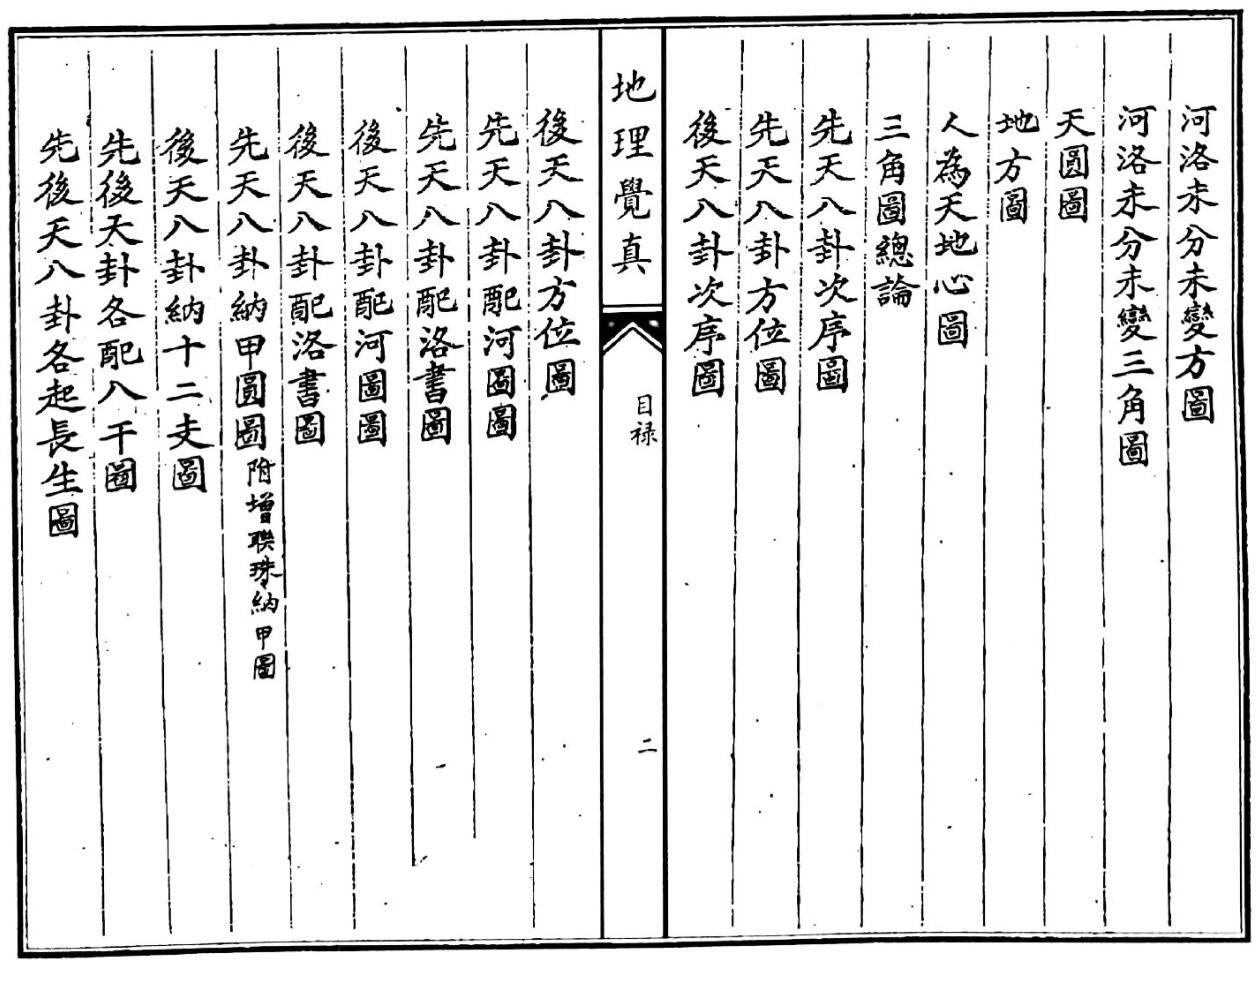 河洛未分未變方圖
河洛未分未變三角圖
天圓圖
地方圖
人為天地心圖
三角圖總論
先天八卦次序圖
先天八卦方位圖
後天八卦次序圖
地理覺真
目禄
二
後天八卦方位圖
先天八卦配河圖圖
先天八卦配洛書圖
後天八卦配河圖圖
後天八卦配洛書圖
先天八卦納甲圓圖附增聯珠納甲圖
後天八卦納十二支圖
先後天卦各配八干圖
先後天八卦各起長生圖